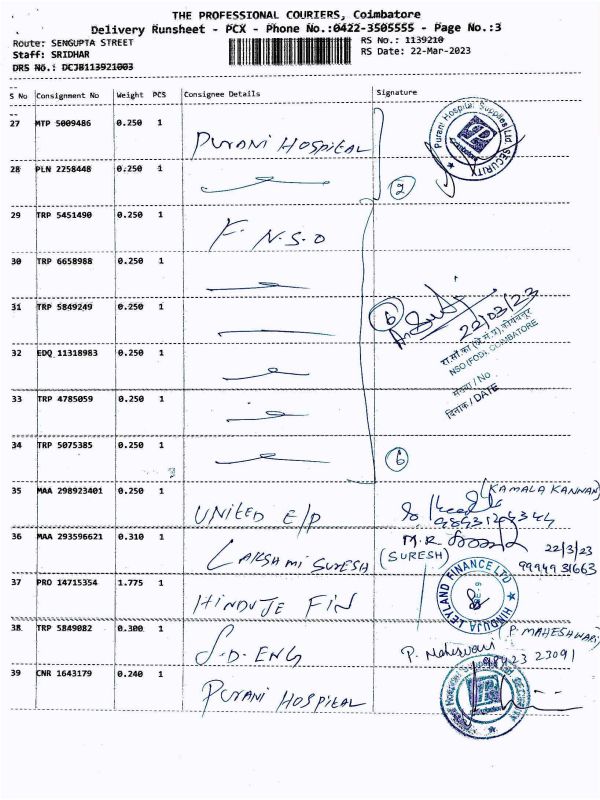 THE PROFESSIONAL COURIERS, Coimbatore
Delivery Runsheet - PCX - Phone No.:0422-3505555 - Page No.:3
Route: SENGUPTA STREET
RS No.: 1139210
Staff: SRIDHAR
RS Date: 22-Mar-2023
DRS No.: DCJB113921003
S No Consignment No Weight PCS Consignee Details Signature
27 MTP 5009486 0.250 1 PURANI HOSPITAL
Purani Hospital Supplies Ltd SECURITY
28 PLN 2258448 0.250 1
2
29 TRP 5451490 0.250 1 F. N.S.O
30 TRP 6658988 0.250 1
31 TRP 5849249 0.250 1
6
22/03/23
NSO (FOD), COIMBATORE
संख्या / No
दिनांक / DATE
32 EDQ 11318983 0.250 1
33 TRP 4785059 0.250 1
34 TRP 5075385 0.250 1
6
35 MAA 298923401 0.250 1 UNITED E/P
(KAMALA KANNAN)
36 MAA 293596621 0.310 1 LAKSHMI SURESH
M.R
(SURESH)
22/3/23
99949 31663
37 PRO 14715354 1.775 1 HINDUJE FIN
HINDUJA LEYLAND FINANCE LTD
38 TRP 5849082 0.300 1 S.D. ENG
(P. MAHESHWARI)
P. Maheswari
98423 23091
39 CNR 1643179 0.240 1 PURANI HOSPITAL